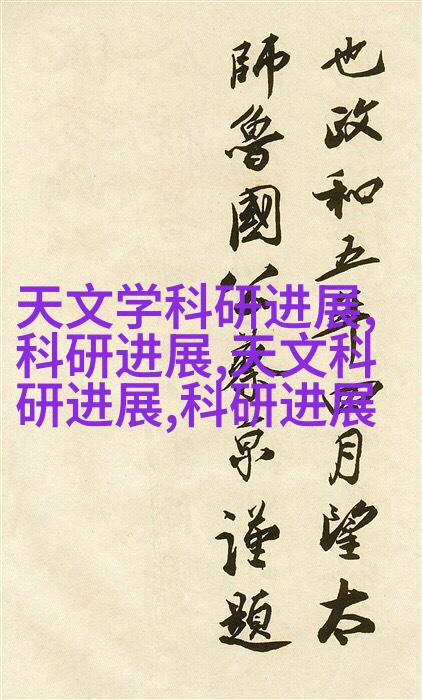 也政和五年四月望太
師魯國公蔡京謹題
天文学科研进展,
科研进展,天文科
研进展,科研进展